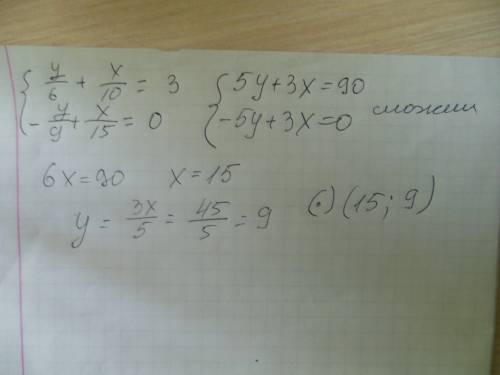 { y/6 + x/10 = 3 { 5y+3x=90
{ -y/9 + x/15 = 0 { -5y+3x=0 сложим
6x=90 x=15
y = 3x/5 = 45/5 = 9 (.) (15; 9)